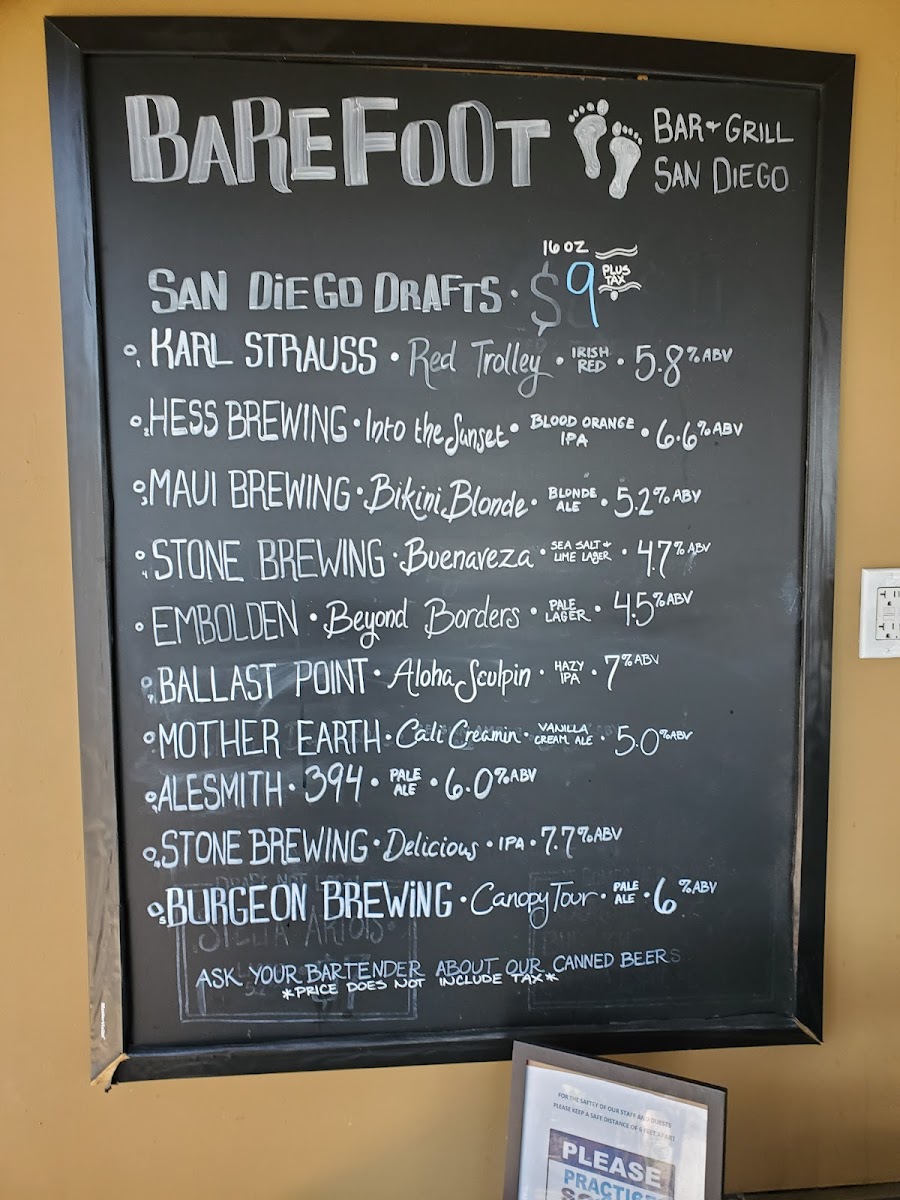 BAREFOOT BAR + GRILL
SAN DIEGO
16 OZ
SAN DIEGO DRAFTS · $9 PLUS TAX
KARL STRAUSS · Red Trolley · IRISH RED · 5.8% ABV
HESS BREWING · Into the Sunset · BLOOD ORANGE IPA · 6.6% ABV
MAUI BREWING · Bikini Blonde · BLONDE ALE · 5.2% ABV
STONE BREWING · Buenaveza · SEA SALT + LIME LAGER · 4.7% ABV
EMBOLDEN · Beyond Borders · PALE LAGER · 4.5% ABV
BALLAST POINT · Aloha Sculpin · HAZY IPA · 7% ABV
MOTHER EARTH · Cali Creamin · VANILLA CREAM ALE · 5.0% ABV
ALESMITH · 394 · PALE ALE · 6.0% ABV
STONE BREWING · Delicious · IPA · 7.7% ABV
BURGEON BREWING · Canopy Tour · PALE ALE · 6% ABV
STELLA ARTOIS
ASK YOUR BARTENDER ABOUT OUR CANNED BEERS
*PRICE DOES NOT INCLUDE TAX*
FOR THE SAFTEY OF OUR STAFF AND GUESTS
PLEASE KEEP A SAFE DISTANCE OF 6 FEET APART
PLEASE
PRACTICE